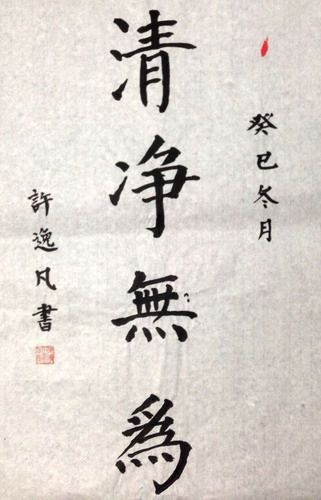 癸巳冬月
清净無為
許逸凡書